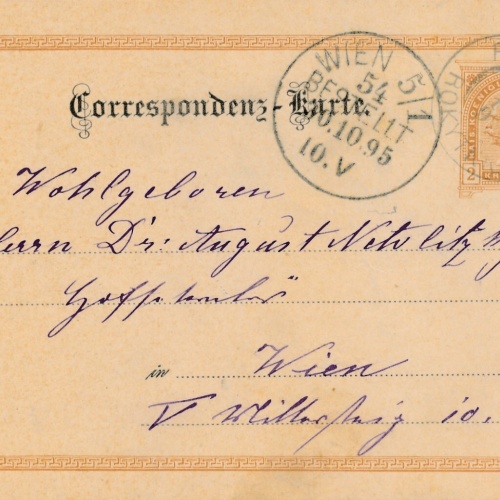 WIEN 5/1
54
BESTELLT
10.10.95
10.V
Correspondenz-Karte.
2
Wohlgeboren
Herrn Dr: August Netolitzky
in Wien
V Mittersteig 10.